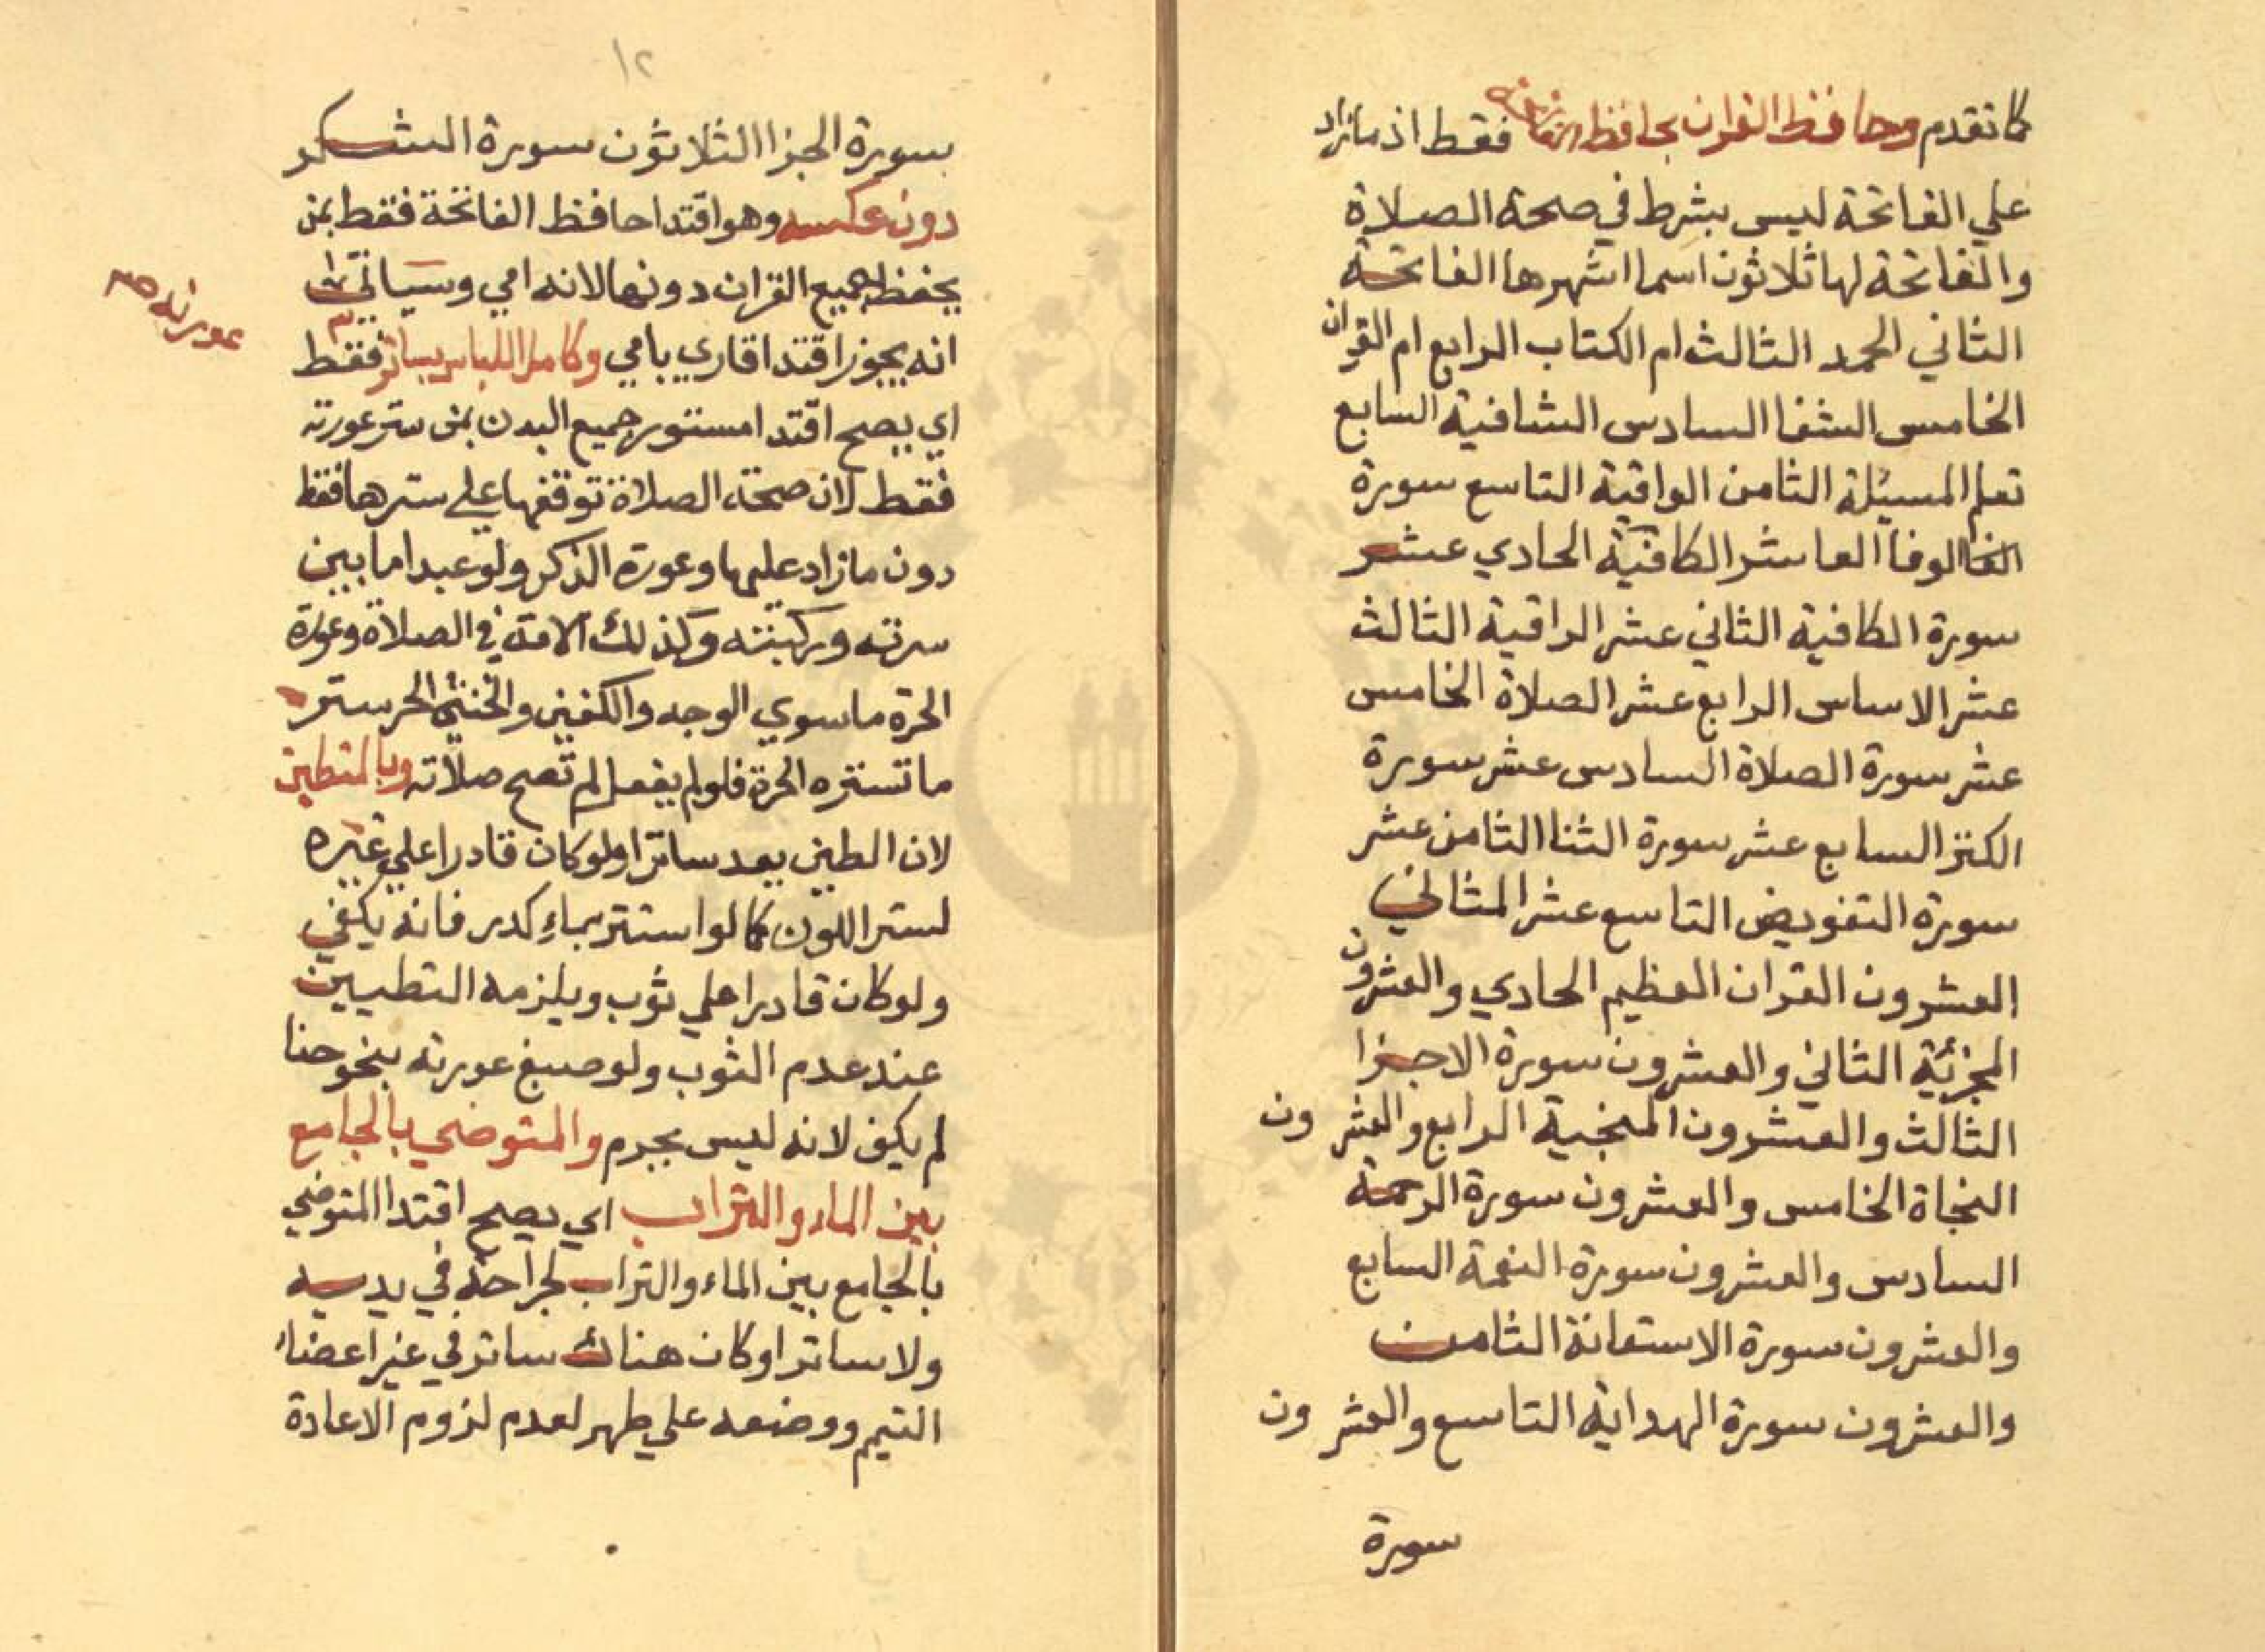 كما تقدم وحافظ القران بحافظ الفاتحة فقط اذ ما زاد
علي الفاتحة ليس بشرط في صحة الصلاة
والفاتحة لها ثلاثون اسما اشهرها الفاتحة
الثاني الحمد الثالث ام الكتاب الرابع ام القران
الخامس الشفا السادس الشافية السابع
تعلم المسئلة الثامن الواقية التاسع سورة
الوفا العاشر الكافية الحادي عشر
سورة الكافية الثاني عشر الراقية الثالث
عشر الاساس الرابع عشر الصلاة الخامس
عشر سورة الصلاة السادس عشر سورة
الكنز السابع عشر سورة الثنا الثامن عشر
سورة التفويض التاسع عشر المثاني
العشرون القران العظيم الحادي والعشرون
المجزئية الثاني والعشرون سورة الاجزا
الثالث والعشرون المنجية الرابع والعشرون
النجاة الخامس والعشرون سورة الرحمة
السادس والعشرون سورة النعمة السابع
والعشرون سورة الاستعانة الثامن
والعشرون سورة الهداية التاسع والعشرون
سورة
١٢
سورة الجزا الثلاثون سورة الشكر
دون عكسه وهو اقتدا حافظ الفاتحة فقط بمن
يحفظ جميع القران دونها لانه امي وسياتي
انه يجوز اقتدا قاري بامي وكامل اللباس بساتر فقط
عورته صح
اي يصح اقتدا مستور جميع البدن بمن ستر عورته
فقط لان صحة الصلاة توقفها علي سترها فقط
دون ما زاد عليها وعورة الذكر ولو عبدا ما بين
سرته وركبته وكذلك الامة في الصلاة وعورة
الحرة ما سوي الوجه والكفين والخنثي الحر ستر
ما تستره الحرة فلو لم يفعل لم تصح صلاته وبالمتطين
لان الطين يعد ساترا ولو كان قادرا علي غيره
لستر اللون كما لو استتر بماء كدر فانه يكفي
ولو كان قادرا علي ثوب ويلزمه التطيين
عند عدم الثوب ولو صبغ عورته بنحو حنا
لم يكف لانه ليس بجرم والمتوضي بالجامع
بين الماء والتراب اي يصح اقتدا المتوضي
بالجامع بين الماء والتراب لجراحة في يديه
ولا ساتر او كان هناك ساتر في غير اعضاء
التيمم ووضعه علي طهر لعدم لزوم الاعادة